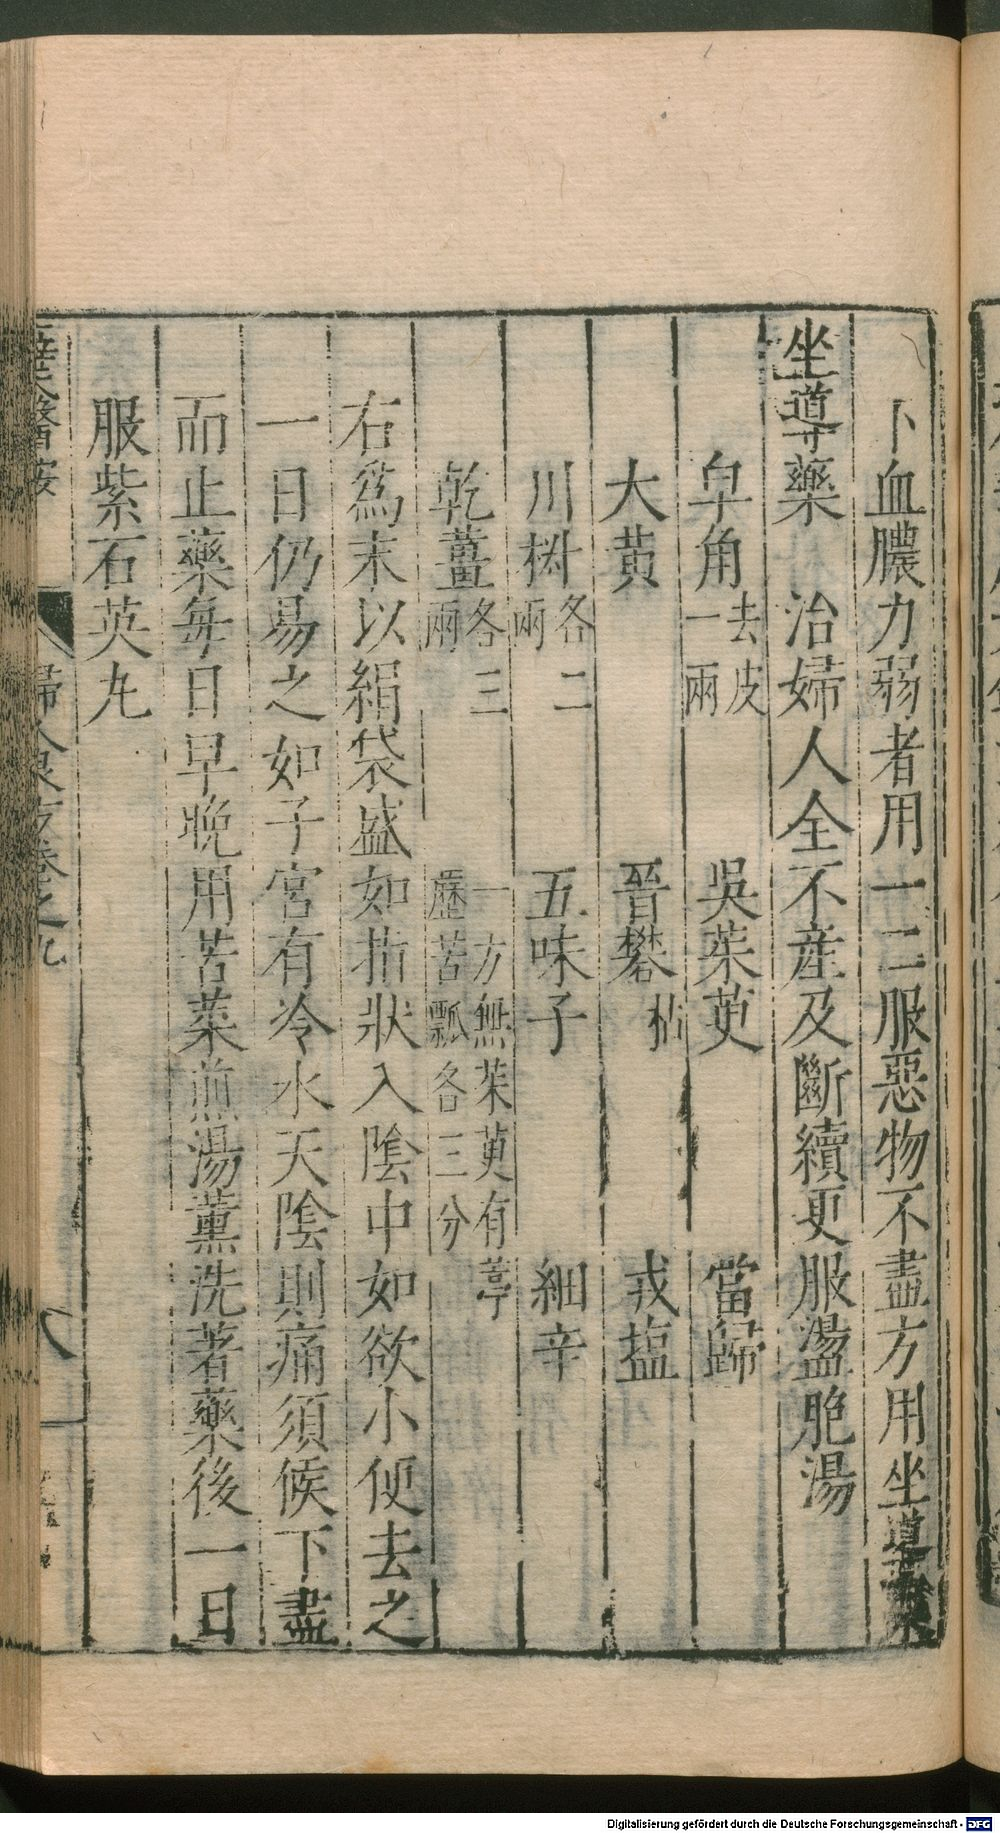 下血膿力弱者用一二服惡物不盡方用坐導藥
坐導藥　治婦人全不產及斷續更服盪胞湯
皁角去皮一兩　吳茱萸　當歸
大黃　晉礬枯　戎塩
川椒各二兩　五味子　細辛
乾薑各三兩　一方無茱萸有葶藶苦瓢各三分
右爲末以絹袋盛如指狀入陰中如欲小便去之
一日仍易之如子宮有冷水天陰則痛須候下盡
而止藥每日早晚用苦菜煎湯薰洗著藥後一日
服紫石英丸
醫按　婦人良方卷之九　八
Digitalisierung gefördert durch die Deutsche Forschungsgemeinschaft - DFG